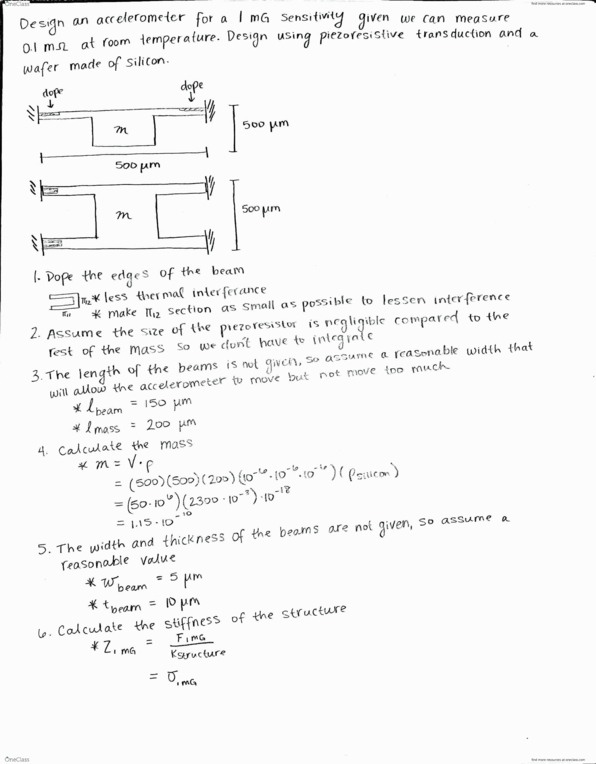 OneClass
find more resources at oneclass.com
Design an accelerometer for a 1 mG sensitivity given we can measure
0.1 mΩ at room temperature. Design using piezoresistive transduction and a
wafer made of silicon.
dope
dope
m
500 μm
500 μm
m
500 μm
1. Dope the edges of the beam
π12 * less thermal interferance
π11
* make π12 section as small as possible to lessen interference
2. Assume the size of the piezoresistor is negligible compared to the
rest of the mass so we don't have to integrate
3. The length of the beams is not given, so assume a reasonable width that
will allow the accelerometer to move but not move too much
* lbeam = 150 μm
* lmass = 200 μm
4. Calculate the mass
* m = V·ρ
= (500)(500)(200)(10⁻⁶·10⁻⁶·10⁻⁶)(ρsilicon)
= (50·10⁶)(2300·10⁻³)·10⁻¹⁸
= 1.15·10⁻¹⁰
5. The width and thickness of the beams are not given, so assume a
reasonable value
* wbeam = 5 μm
* tbeam = 10 μm
6. Calculate the stiffness of the structure
* Z1mG = F1mG / Kstructure
= σ1mG
OneClass
find more resources at oneclass.com